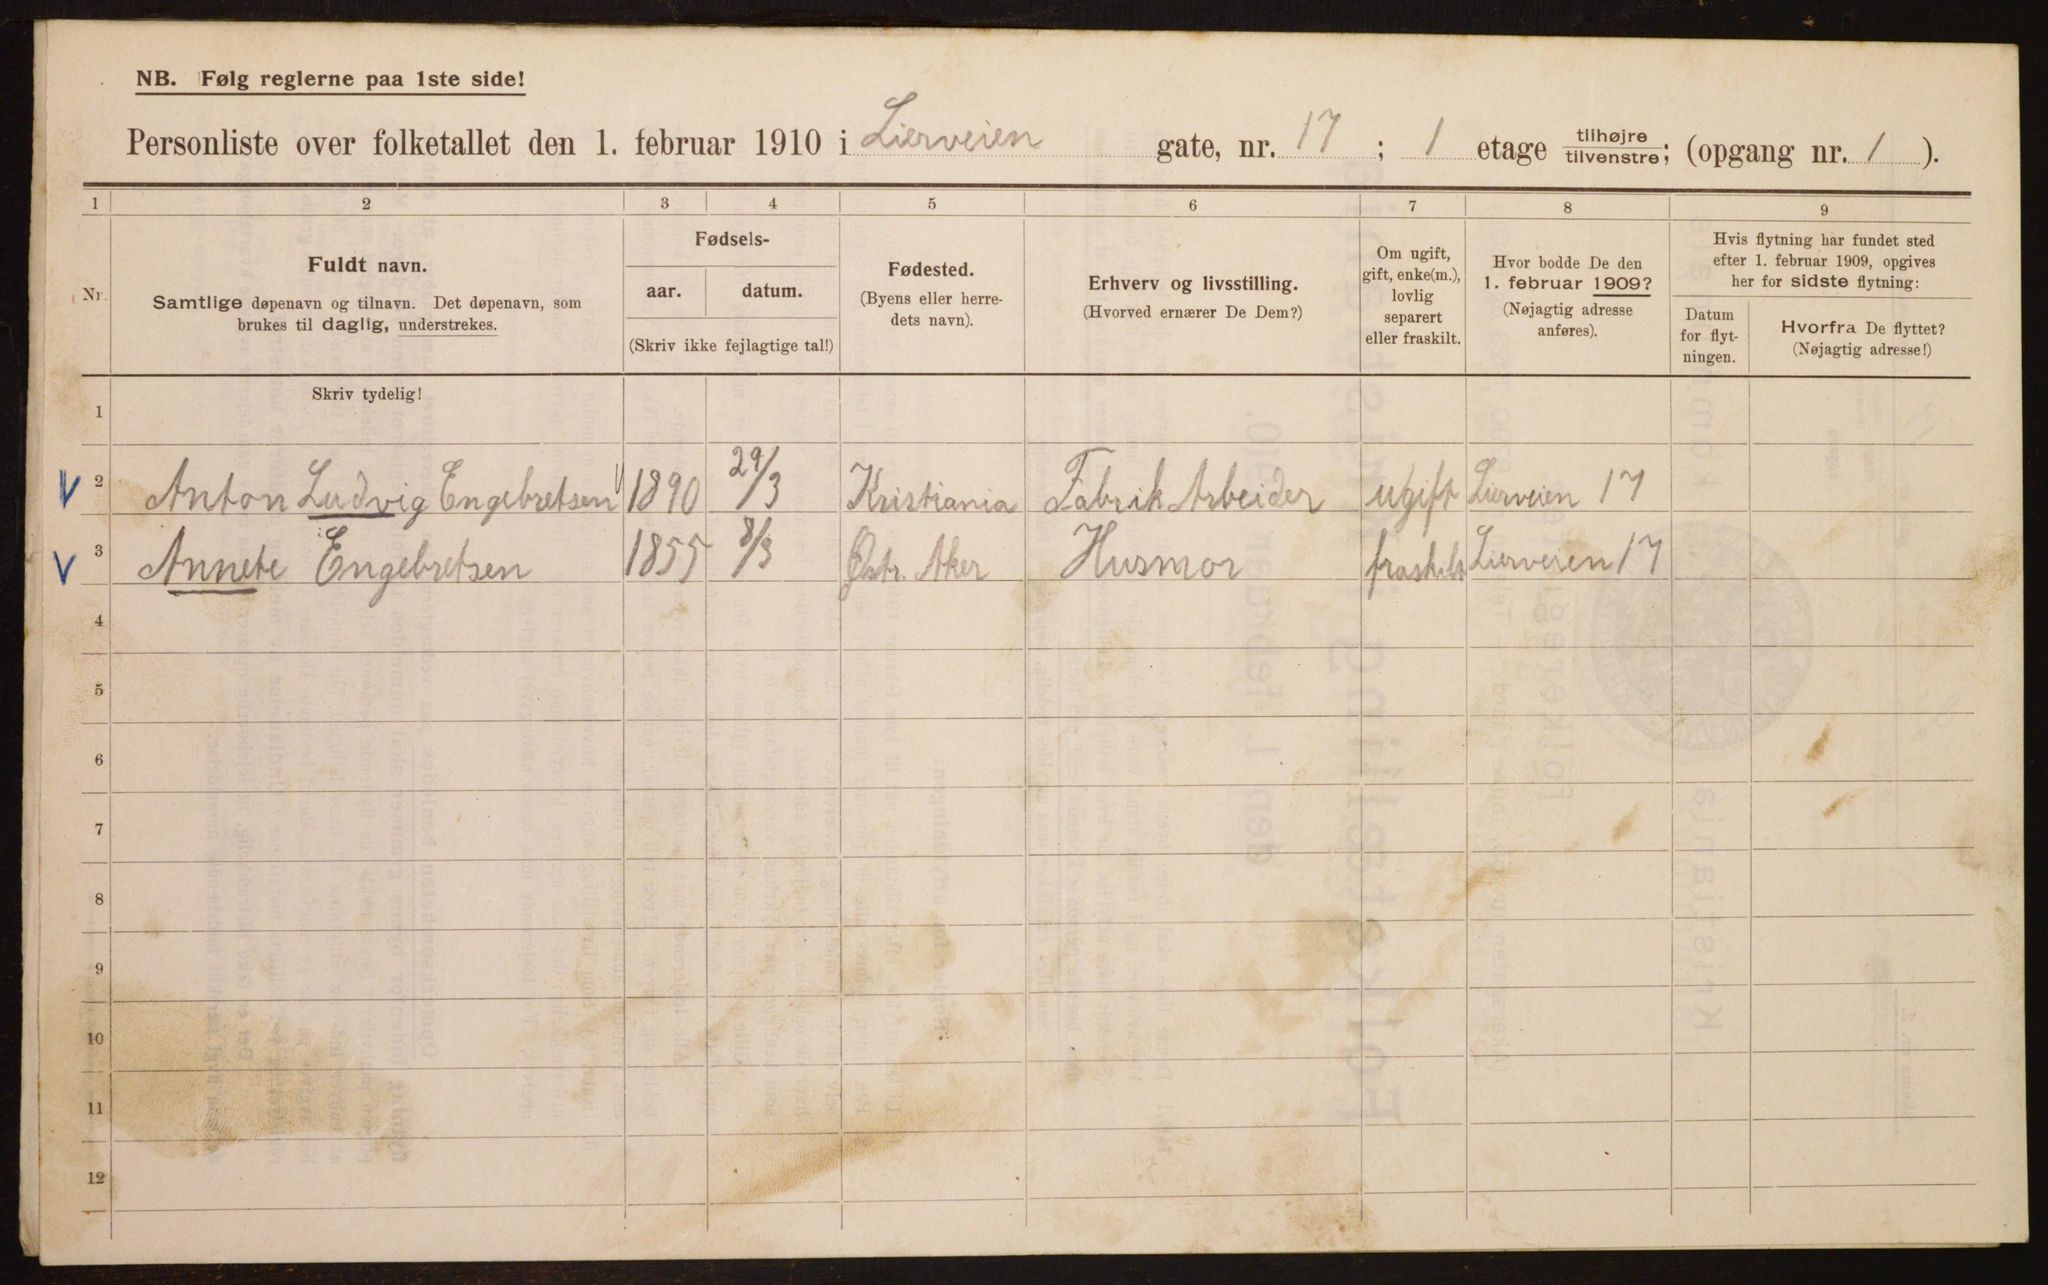 NB. Følg reglerne paa 1ste side!
Personliste over folketallet den 1. februar 1910 i Lierveien gate, nr. 17 ; 1 etage tilhøjre/tilvenstre; (opgang nr. 1 ).
1 2 3 4 5 6 7 8 9
Nr.
Fuldt navn.
Samtlige døpenavn og tilnavn. Det døpenavn, som
brukes til daglig, understrekes.
Fødsels-
aar. datum.
(Skriv ikke fejlagtige tal!)
Fødested.
(Byens eller herre-
dets navn).
Erhverv og livsstilling.
(Hvorved ernærer De Dem?)
Om ugift,
gift, enke(m.),
lovlig
separert
eller fraskilt.
Hvor bodde De den
1. februar 1909?
(Nøjagtig adresse
anføres).
Hvis flytning har fundet sted
efter 1. februar 1909, opgives
her for sidste flytning:
Datum
for flyt-
ningen.
Hvorfra De flyttet?
(Nøjagtig adresse!)
Skriv tydelig!
1
2 Anton Ludvig Engebretsen 1890 29/3 Kristiania Fabrik Arbeider ugift Lierveien 17
3 Annete Engebretsen 1855 8/3 Østr. Aker Husmor fraskilt Lierveien 17
4
5
6
7
8
9
10
11
12